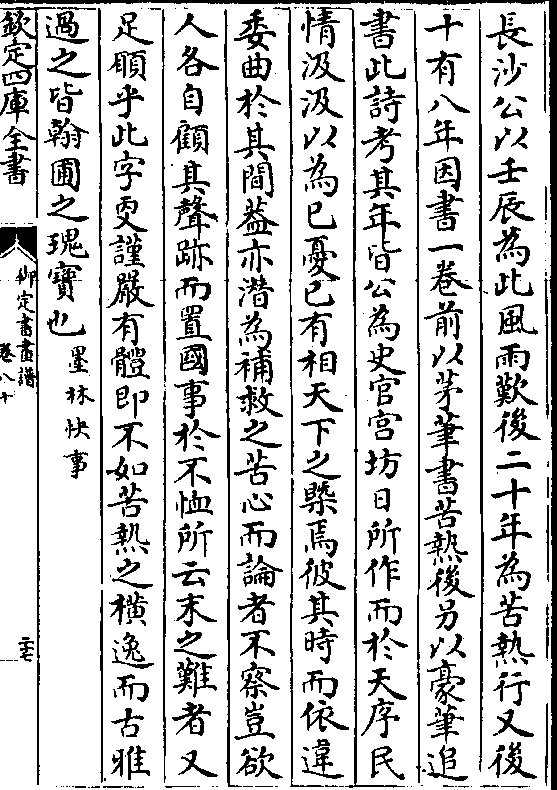 長沙公以壬辰為此風雨歎後二十年為苦熱行又後
十有八年因書一卷前以茅筆書苦熱後另以豪筆追
書此詩考其年皆公為史官宫坊日所作而於天序民
情汲汲以為已憂已有相天下之槩焉彼其時而依違
委曲於其間葢亦潜為補救之苦心而論者不察豈欲
人各自顧其聲跡而置國事於不恤所云末之難者又
足願乎此字更謹嚴有體即不如苦熱之橫逸而古雅
過之皆翰圃之瑰寶也 墨林快事
欽定四庫全書
御定書畫譜
卷八十
二十七